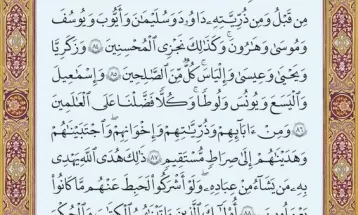 مِن قَبْلُ وَمِن ذُرِّيَّتِهِۦ دَاوُۥدَ وَسُلَيْمَٰنَ وَأَيُّوبَ وَيُوسُفَ
وَمُوسَىٰ وَهَٰرُونَ ۚ وَكَذَٰلِكَ نَجْزِى ٱلْمُحْسِنِينَ ٨٤ وَزَكَرِيَّا
وَيَحْيَىٰ وَعِيسَىٰ وَإِلْيَاسَ ۖ كُلٌّ مِّنَ ٱلصَّٰلِحِينَ ٨٥ وَإِسْمَٰعِيلَ
وَٱلْيَسَعَ وَيُونُسَ وَلُوطًا ۚ وَكُلًّا فَضَّلْنَا عَلَى ٱلْعَٰلَمِينَ
٨٦ وَمِنْ ءَابَآئِهِمْ وَذُرِّيَّٰتِهِمْ وَإِخْوَٰنِهِمْ ۖ وَٱجْتَبَيْنَٰهُمْ
وَهَدَيْنَٰهُمْ إِلَىٰ صِرَٰطٍ مُّسْتَقِيمٍ ٨٧ ذَٰلِكَ هُدَى ٱللَّهِ يَهْدِى
بِهِۦ مَن يَشَآءُ مِنْ عِبَادِهِۦ ۚ وَلَوْ أَشْرَكُوا۟ لَحَبِطَ عَنْهُم مَّا كَانُوا۟
يَعْمَلُونَ ٨٨ أُو۟لَٰٓئِكَ ٱلَّذِينَ ءَاتَيْنَٰهُمُ ٱلْكِتَٰبَ وَٱلْحُكْمَ